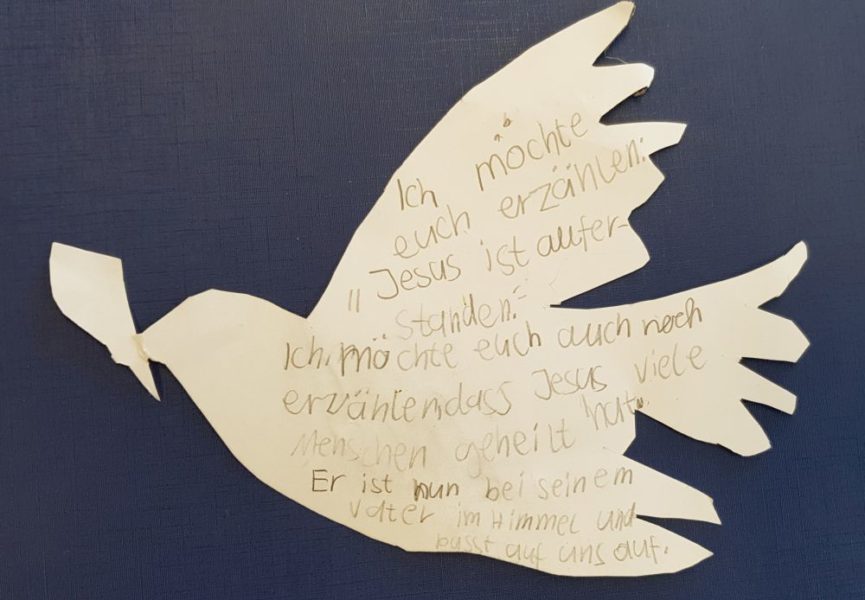 Ich möchte
euch erzählen:
"Jesus ist aufer-
standen."
Ich möchte euch auch noch
erzählen, dass Jesus viele
Menschen geheilt hat.
Er ist nun bei seinem
Vater im Himmel und
passt auf uns auf.